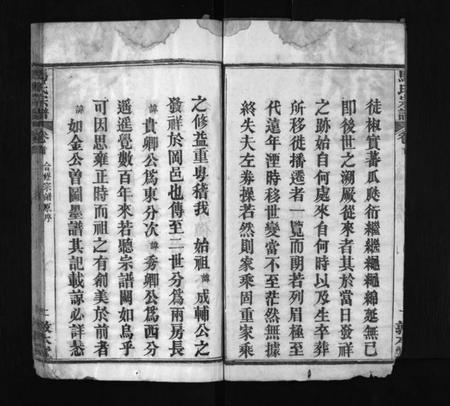 徒椒實蕃瓜瓞衍繼繼繩繩綿延無已
即後世之溯厥從來者其於當日發祥
之跡始自何處來自何時以及生卒葬
所移徙播遷者一覽而朗若列眉極至
代遠年湮時移世變當不至茫然無據
終失夫左券操若然則家乘固重家乘
之修益重粵稽我 始祖 諱成輔公之
發祥於岡邑也傳至二世分爲兩房長
諱貴卿公爲東分次 諱秀卿公爲西分
遥遥覺數百年來若聽宗譜闕如烏乎
可因思雍正時而祖之有創美於前者
諱如金公曾圖墨譜其記載諒必詳悉
馬氏宗譜
卷首
合修宗譜原序
一 敦本堂